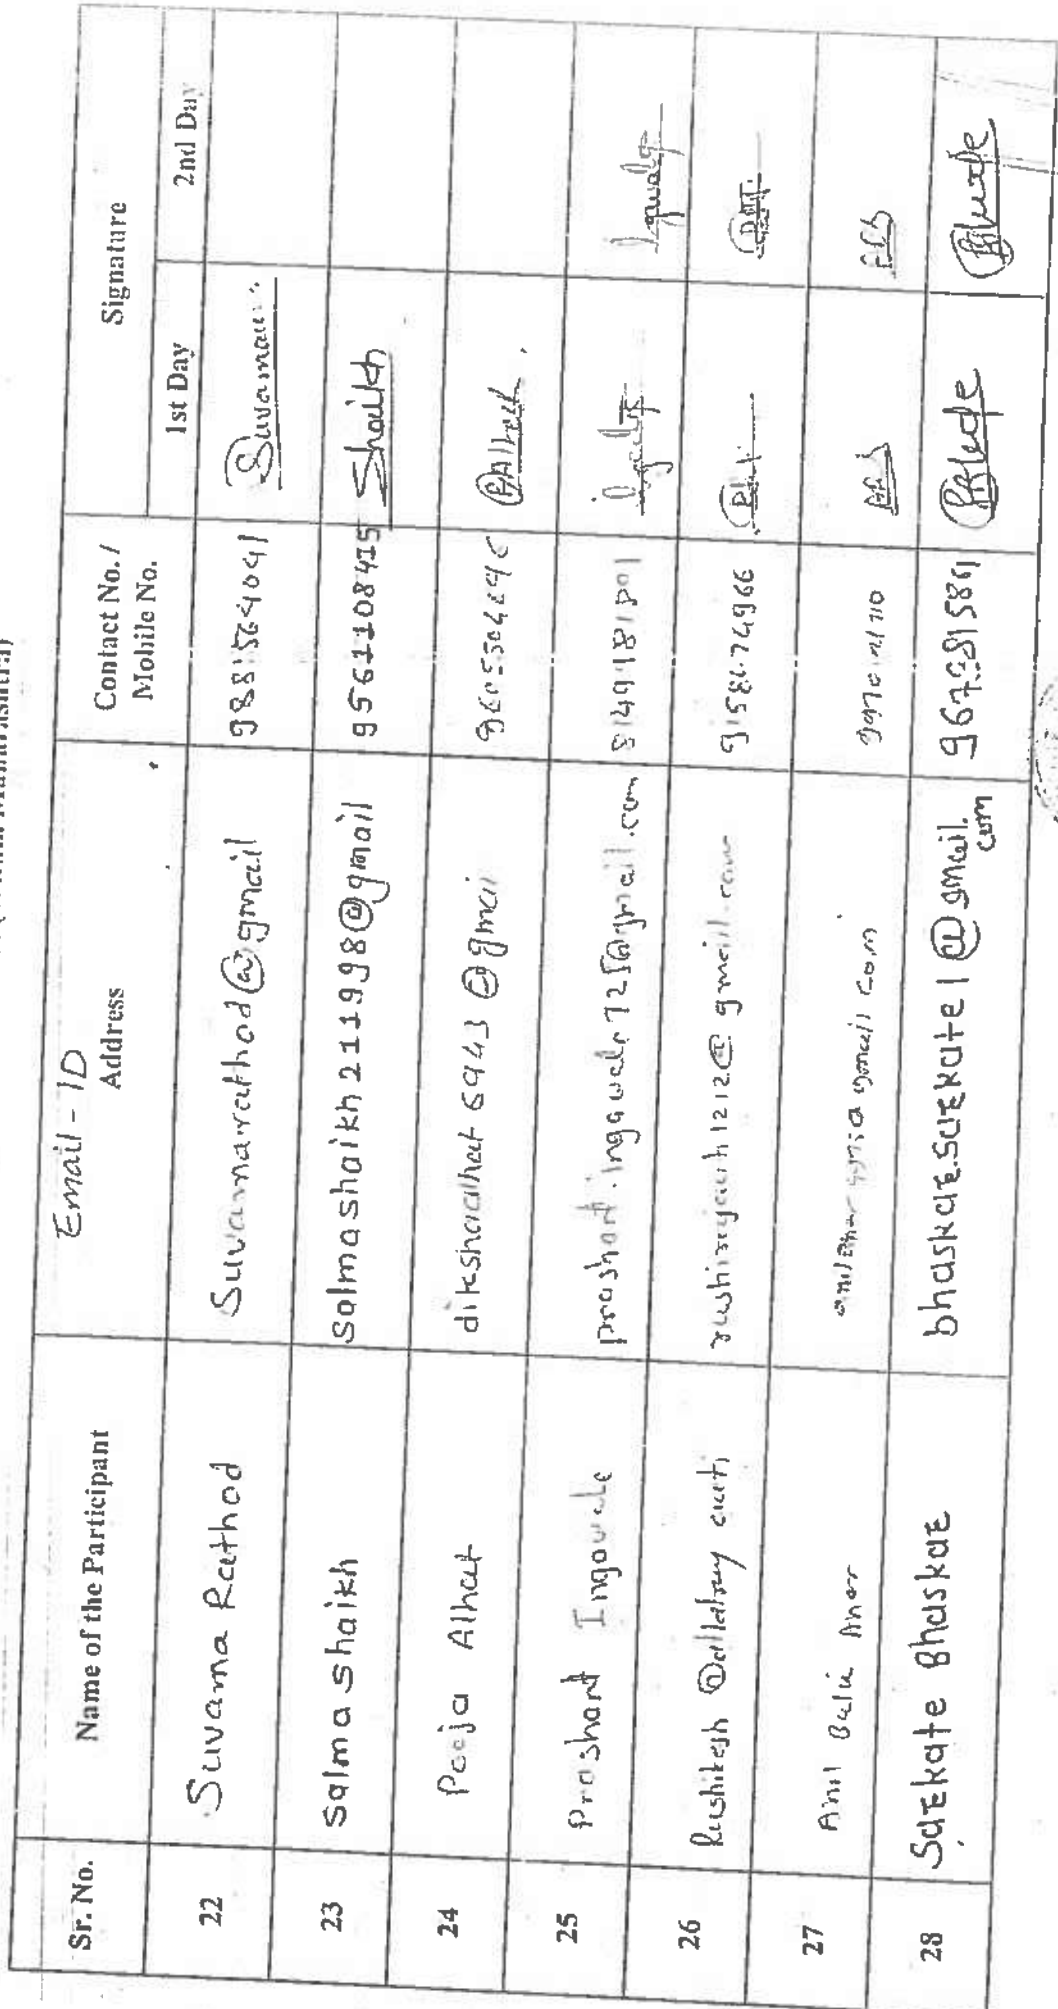 Sr. No. Name of the Participant Email - ID Address Contact No. / Mobile No. Signature
1st Day 2nd Day
22 Suvarna Rathod Suvarnarathod@gmail 9881564041 Suvarna
23 Salma shaikh Salmashaikh211998@gmail 9561108415 Shaikh
24 Pooja Alhat dikshaalhat6943@gmai PAlhat
25 Prashant Ingawale prashant.ingawale725@gmail.com 8149181801
26 Rushikesh rushirajauti1212@gmail.com 9158674966
27 Anil Balu Aher gmail.com
28 Sarkate Bhaskar bhaskar.sarkate1@gmail.com